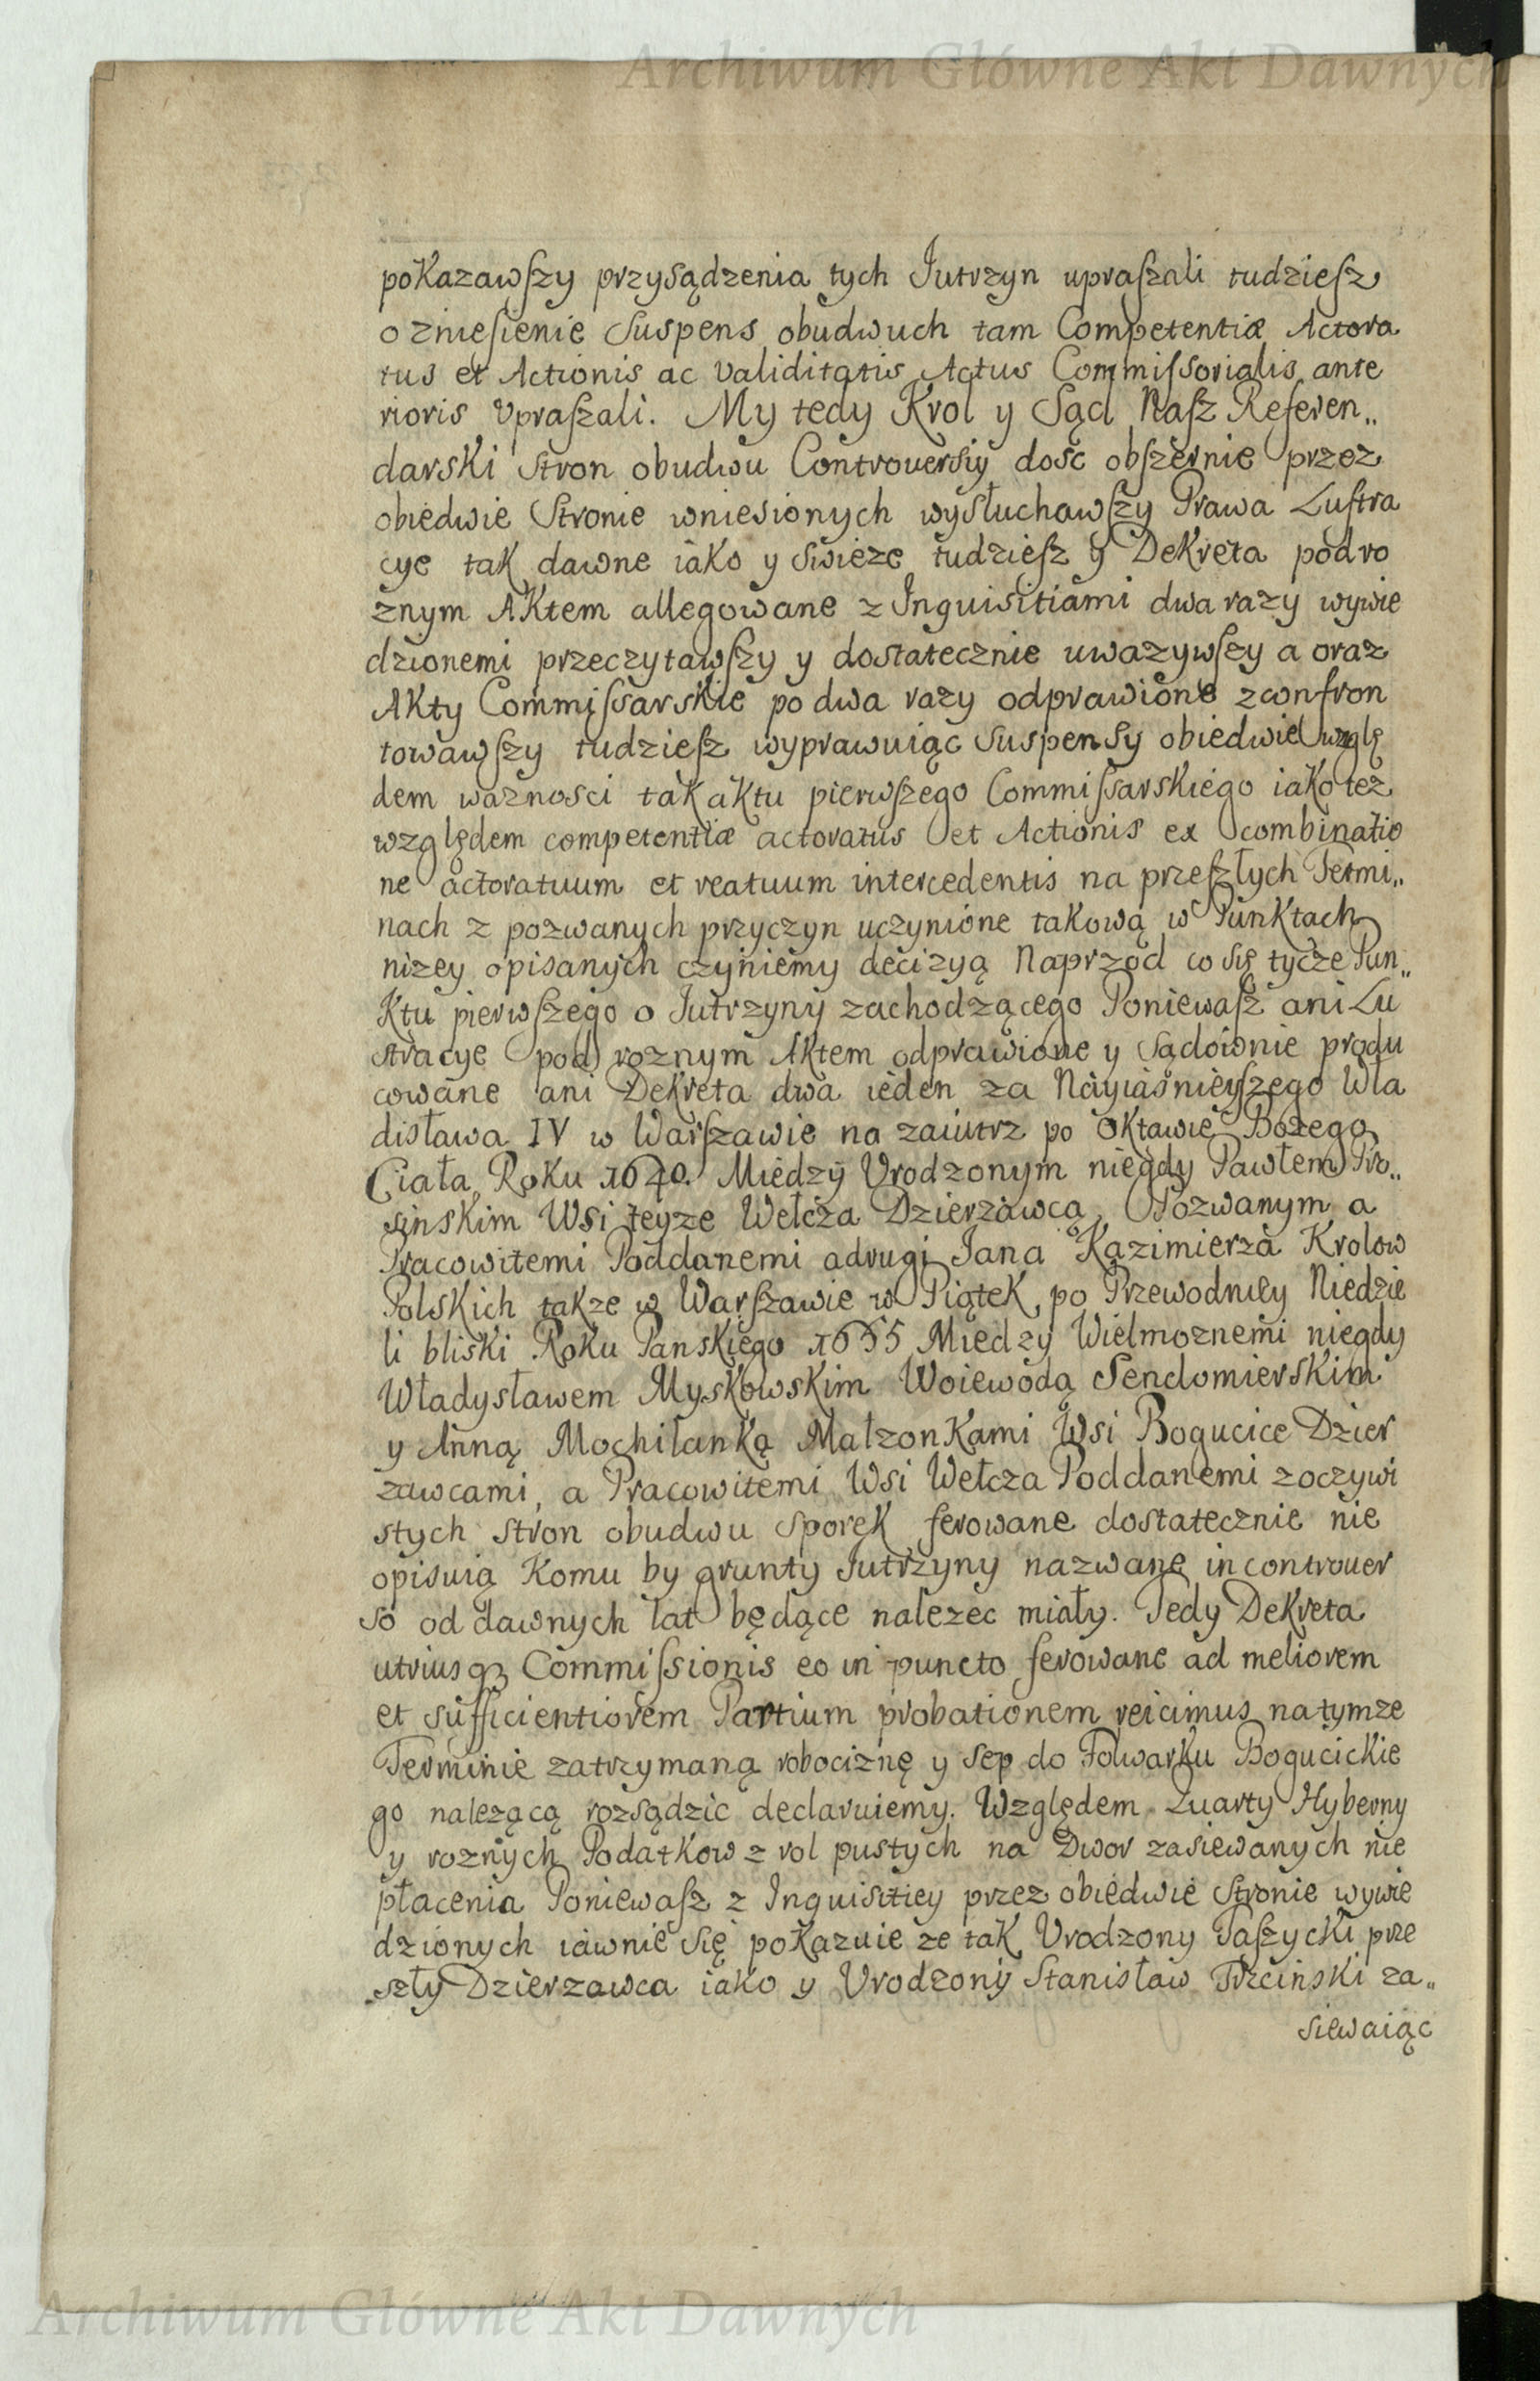 Archiwum Główne Akt Dawnych
pokazawſzy przysądzenia tych Jutrzyn upraſzali tudzieſz
o znieſienie Suspens obudwuch tam Competentiæ Actora
tus et Actionis ac validitatis Actus Commiſsorialis ante
rioris Vpraſzali. My tedy Krol y Sąd Naſz Referen„
darski Stron obudwu Controuersiy dosc obſzernie przez
obiedwie Stronie wniesionych wysłuchawſzy Prawa Luſtra
cye tak dawne iako y swieze tudzieſz y Dekreta pod ro
znym Aktem allegowane z Inquisitiami dwa razy wywie
dzionemi przeczytawſzy y dostatecznie uwazywſzy a oraz
Akty Commiſsarskie po dwa razy odprawione zconfron
towawſzy tudzieſz wyprawuiąc Suspensy obiedwie wzglę
dem wazności tak aktu pierwſzego Commiſsarskiego iako tez
względem competentiæ actoratus et Actionis ex combinatio
ne actoratuum et reatuum intercedentis na przeſzłych Termi„
nach z pozwanych przyczyn uczynione takową w Punktach
nizey opisanych czyniemy decizyą Naprzod co się tycze Pun„
ktu pierwſzego o Jutrzyny zachodzącego Poniewaſz ani Lu
stracye pod roznym Aktem odprawione y sądownie produ
cowane ani Dekreta dwa ieden za Nayiasnieyſzego Wła
disława IV w Warſzawie na zaiutrz po Oktawie Bozego
Ciała Roku 1640. Między Vrodzonym niegdy Pawłem Pro„
sinskim Wsi teyze Wełcza Dzierzawcą Pozwanym a
Pracowitemi Poddanemi a drugi Jana Kazimierza Krolow
Polskich takze w Warſzawie w Piątek po Przewodniey Niedzie
li bliski Roku Panskiego 1655 Miedzy Wielmoznemi niegdy
Władysławem Myskowskim Woiewodą Sendomierskim
y Anną Mochilanką Małzonkami Wsi Bogucice Dzier
zawcami, a Pracowitemi Wsi Wełcza Poddanemi z oczywi
stych stron obudwu sporek ferowane dostatecznie nie
opisuią komu by grunty Jutrzyny nazwane in controuer
so od dawnych lat będące nalezec miały. Tedy Dekreta
utriusqꝫ Commiſsionis eo in puncto ferowane ad meliorem
et sufficientiorem Partium probationem reicimus na tymze
Terminie zatrzymaną robociznę y sep do Folwarku Bogucickie
go nalezącą rozsądzic declaruiemy. Względem Kuarty Hyberny
y roznych Podatkow z rol pustych na Dwor zasiewanych nie
płacenia Poniewaſz z Inquisitiey przez obiedwie Stronie wywie
dzionych iawnie się pokazuie ze tak Vrodzony Taſzycki prze
szły Dzierzawca iako y Vrodzony Stanisław Trzciński za„
siewaiąc
Archiwum Główne Akt Dawnych